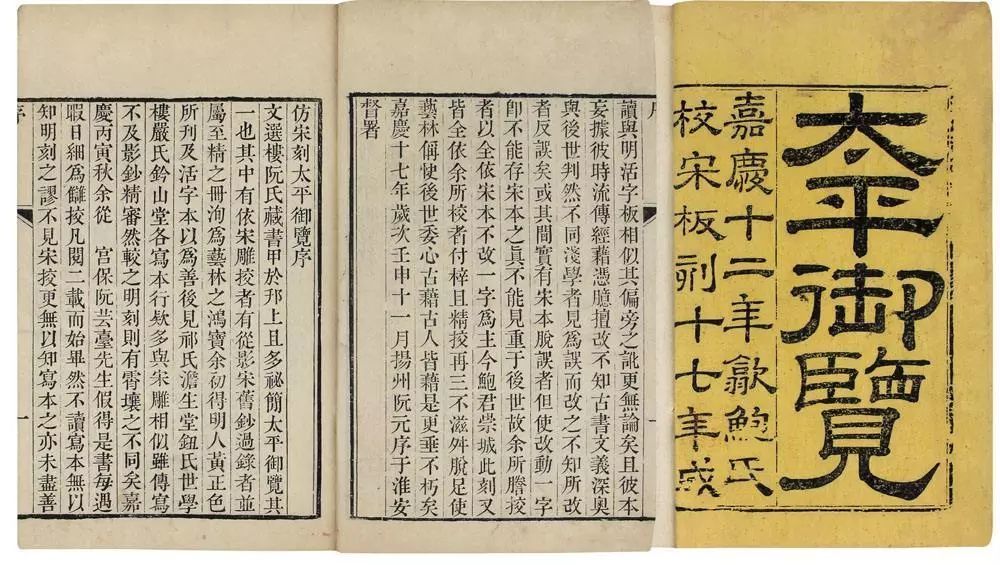 太平御覽
嘉慶十二年歙鮑氏
校宋板刻十七年成
序
讀與明活字板相似其偏旁之訛更無論矣且彼本
妄據彼時流傳經藉憑臆擅改不知古書文義深奧
與後世判然不同淺學者見為誤而改之不知所改
者反誤矣或其間實有宋本脫誤者但使改動一字
卽不能存宋本之真不能見重于後世故余所謄挍
者以全依宋本不改一字為主今鮑君崇城此刻又
皆全依余所挍者付梓且精挍再三不滋舛脫足使
藝林稱快後世委心古藉古人皆藉是更垂不朽矣
嘉慶十七年歲次壬申十一月揚州阮元序于淮安
督署
仿宋刻太平御覽序
文選樓阮氏藏書甲於邗上且多祕簡太平御覽其
一也其中有依宋雕挍者有從影宋舊鈔過錄者並
屬至精之冊洵為藝林之鴻寶余初得明人黃正色
所刊及活字本以為善後見祁氏澹生堂鈕氏世學
樓嚴氏鈐山堂各寫本行欵多與宋雕相似雖傳寫
不及影鈔精審然較之明刻則有霄壤之不同矣嘉
慶丙寅秋余從 宮保阮芸臺先生假得是書每遇
暇日細為讎挍凡閱二載而始畢然不讀寫本無以
知明刻之謬不見宋挍更無以知寫本之亦未盡善
序 一